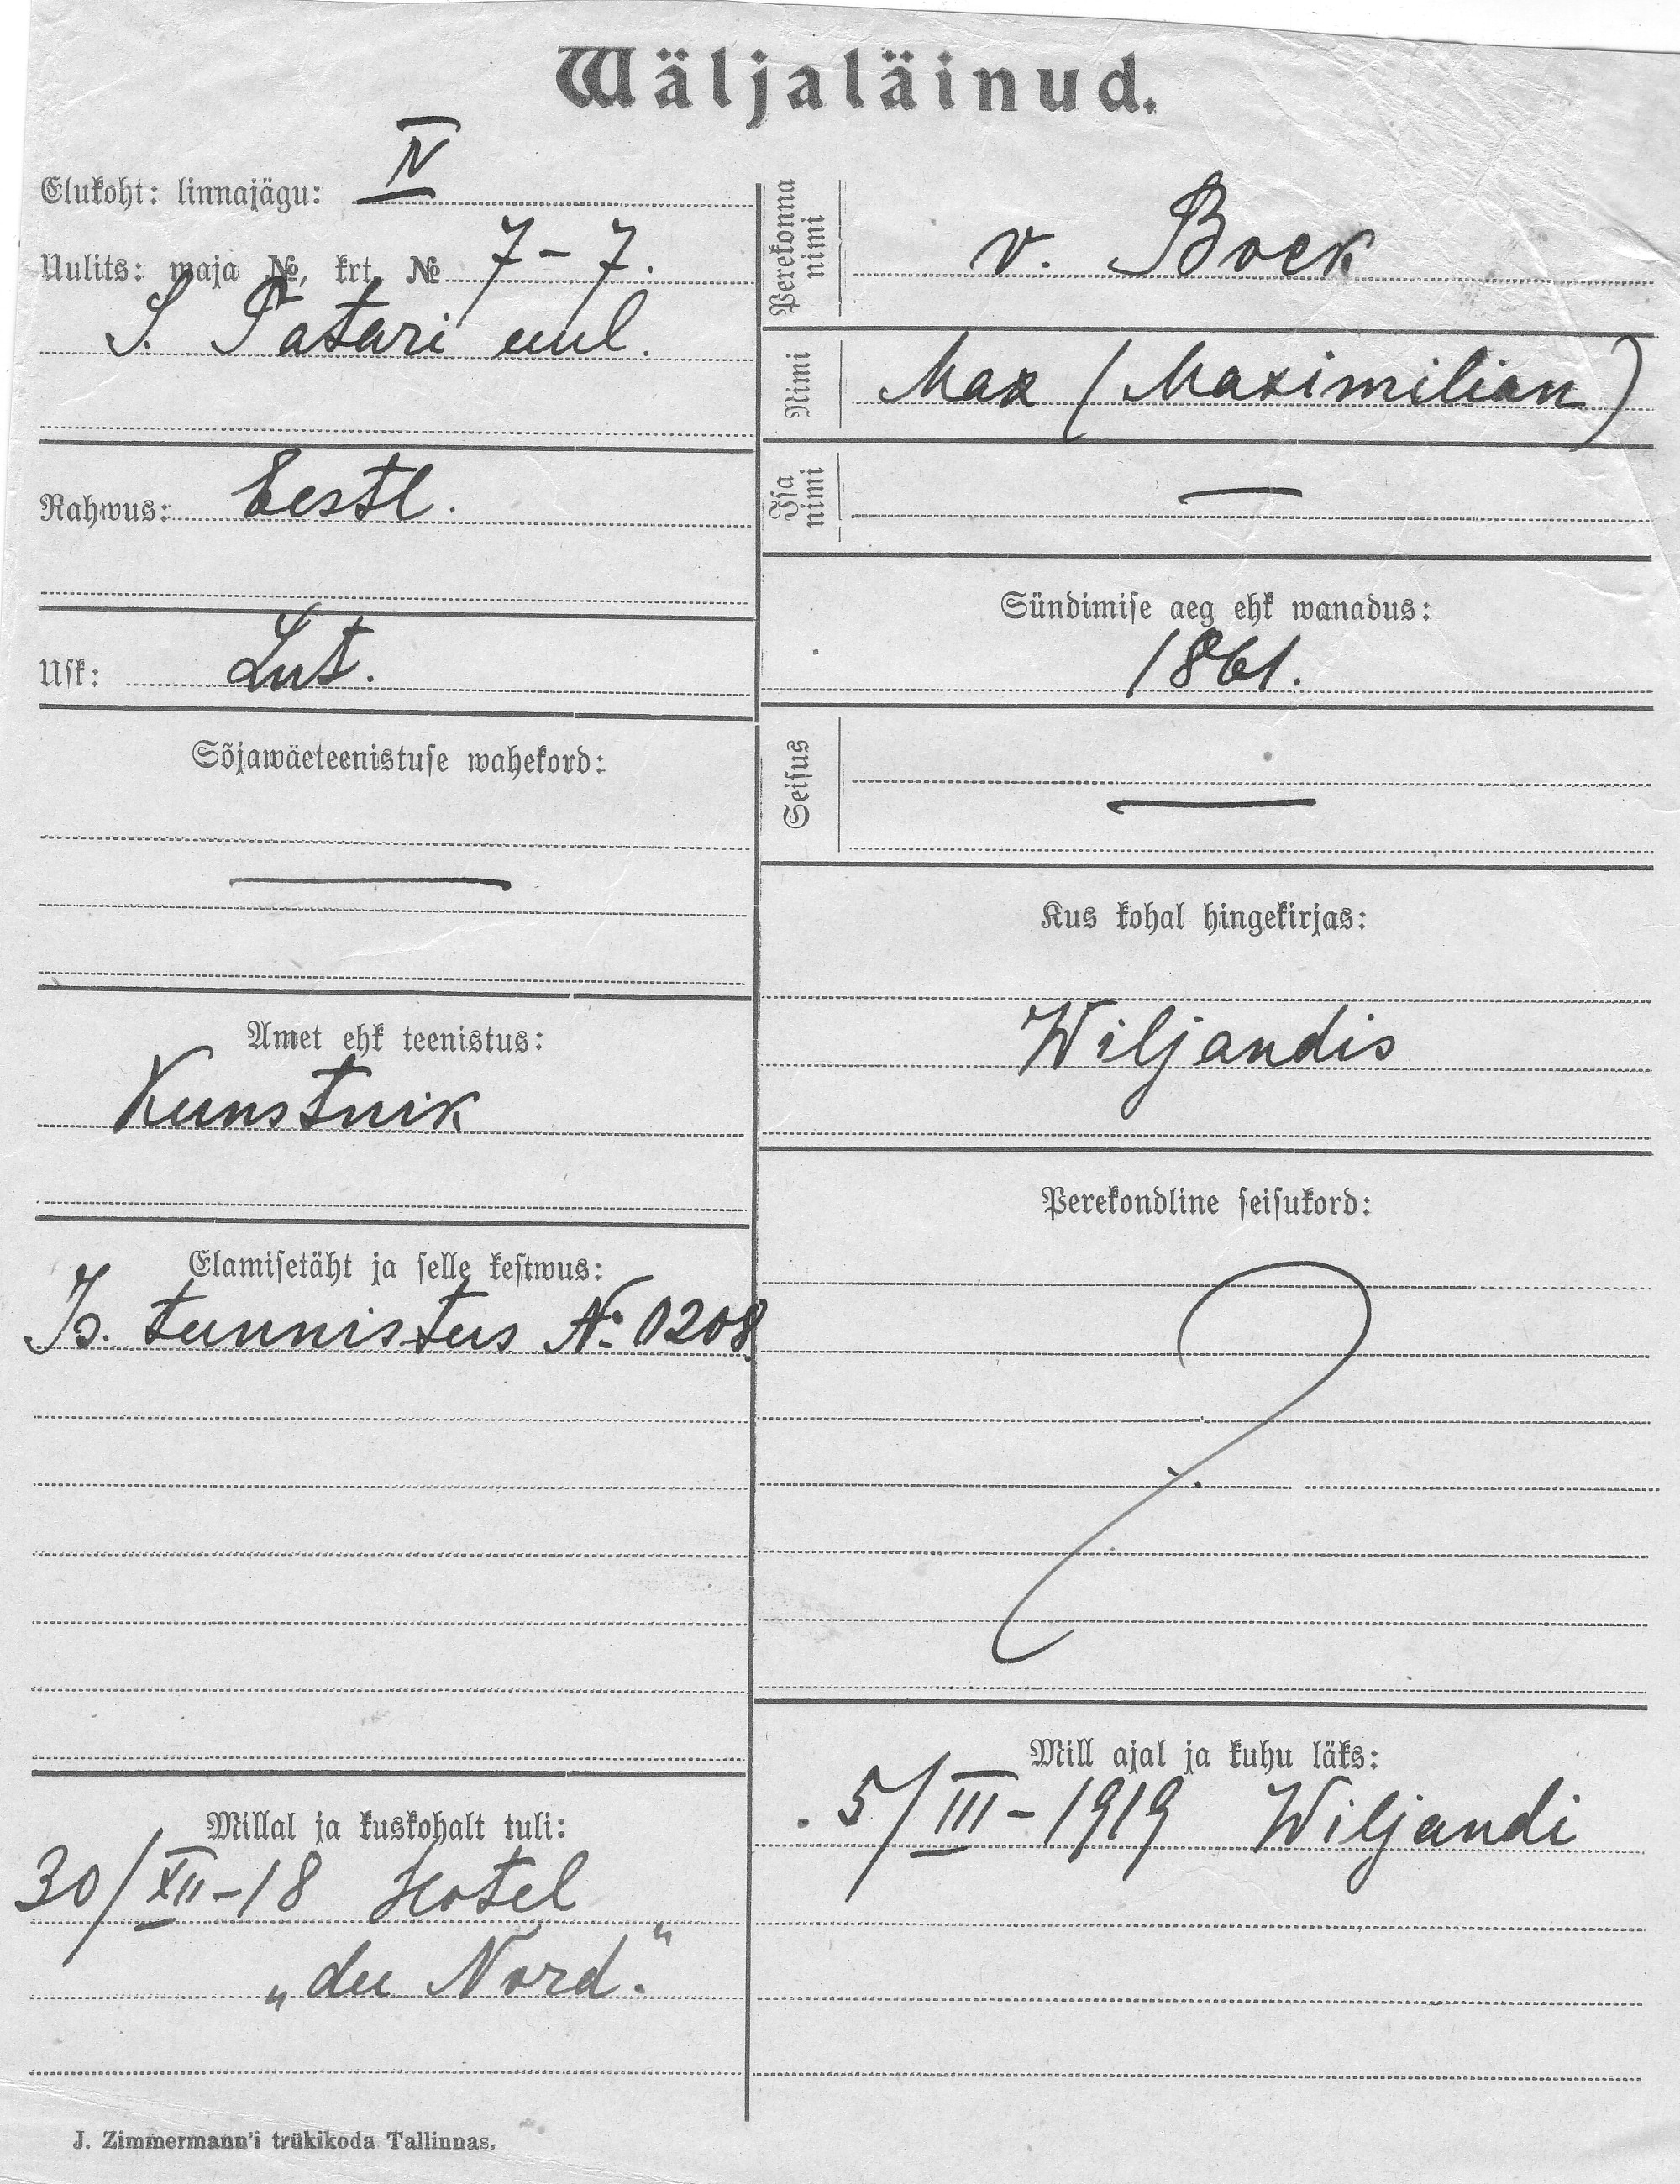 Wäljaläinud.
Elukoht: linnajägu: IV
Uulits: maja №, krt. № 7-7.
S. Tatari uul.
Rahwus: Eestl.
Usk: Lut.
Sõjawäeteenistuse wahekord:
—
Amet ehk teenistus:
Kunstnik
Elamisetäht ja selle kestwus:
Is. tunnistus №: 0208
Millal ja kuskohalt tuli:
30/XII-18 Hotel
„du Nord."
J. Zimmermann'i trükikoda Tallinnas.
Perekonna nimi v. Bock
Nimi Max (Maximilian)
Isa nimi —
Sündimise aeg ehk wanadus:
1861.
Seisus —
Kus kohal hingekirjas:
Wiljandis
Perekondline seisukord:
?
Mill ajal ja kuhu läks:
5/III-1919 Wiljandi